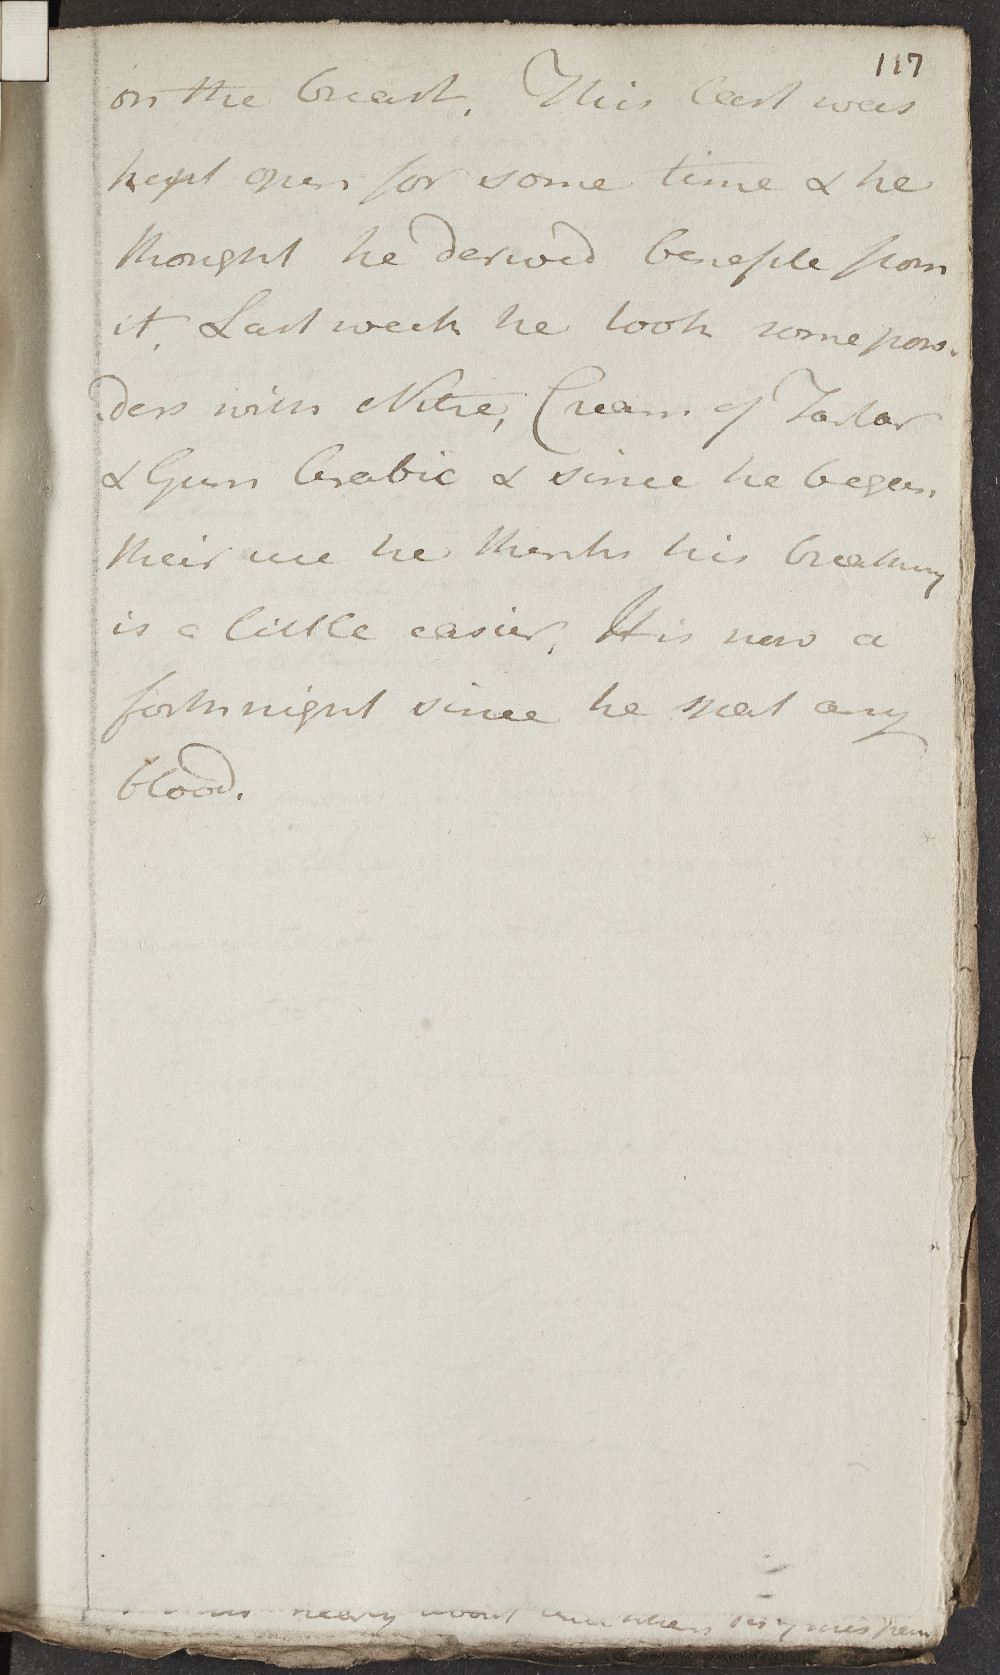 117
on the breast. This last was
kept open for some time & he
thought he derived benefite from
it. Last week he took some pow-
ders with Nitre, Cream of Tartar
& Gum Arabic & since he began
their use he thinks his breathing
is a little easier. It is now a
forthnight since he spat any
blood.
nearly about when